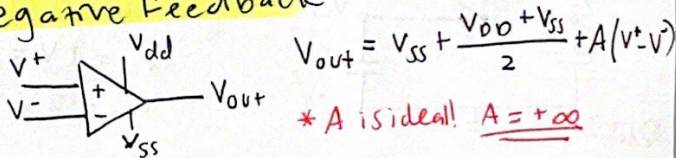 egative Feedback
V⁺
V⁻
+
-
Vdd
Vss
Vout
Vout = Vss + (VDD + Vss)/2 + A(V⁺-V⁻)
* A is ideal! A = +∞